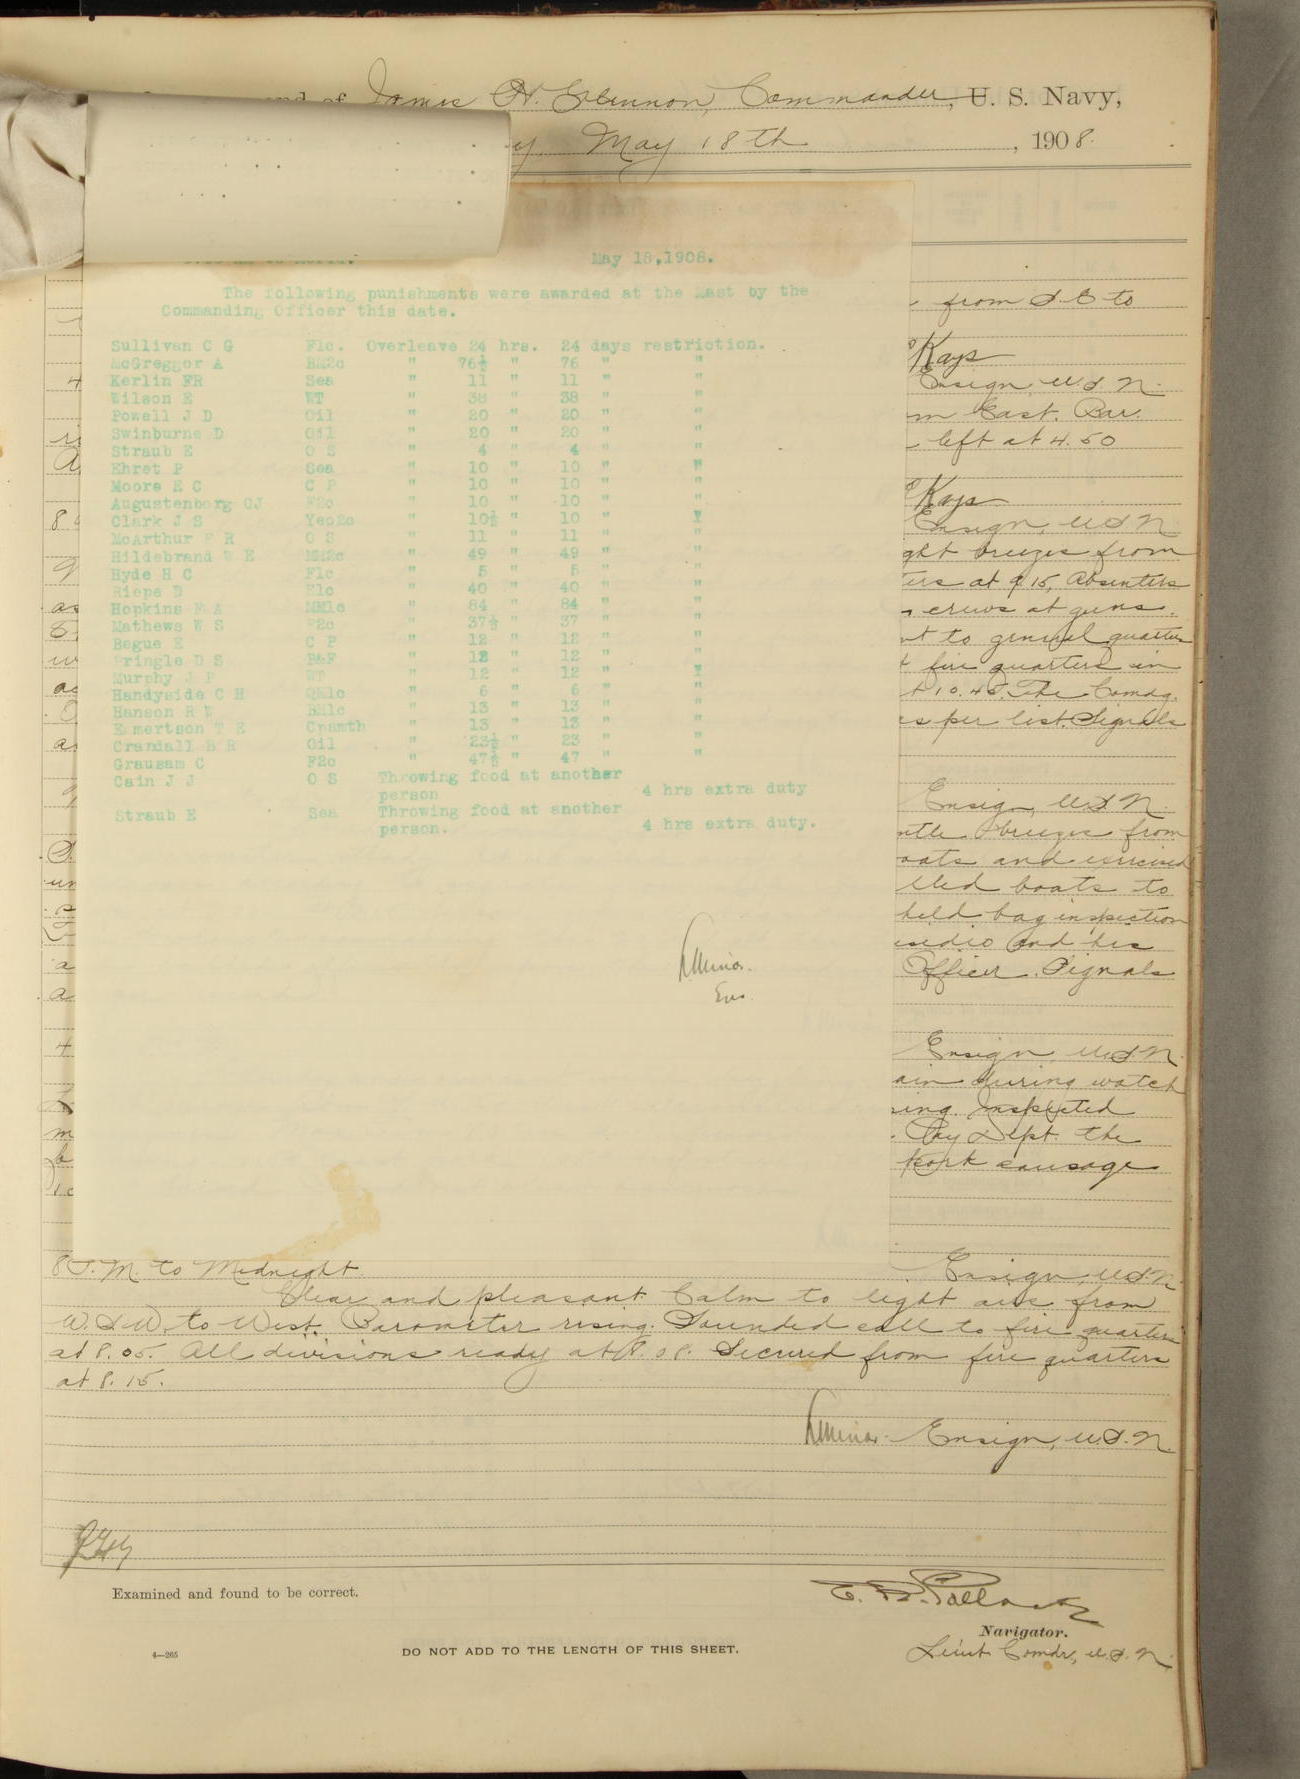 and of James H. Glennon, Commander, U. S. Navy,
y, May 18th, 1908.
May 18,1908.
The following punishments were awarded at the Mast by the
Commanding Officer this date.
Sullivan C G F1c. Overleave 24 hrs. 24 days restriction.
McGreggor A BM2c " 76½ " 76 " "
Kerlin FR Sea " 11 " 11 " "
Wilson E WT " 38 " 38 " "
Powell J D Oil " 20 " 20 " "
Swinburne D Oil " 20 " 20 " "
Straub E O S " 4 " 4 " "
Ehret P Sea " 10 " 10 " "
Moore E C C P " 10 " 10 " "
Augustenborg CJ F2c " 10 " 10 " "
Clark J S Yeo2c " 10½ " 10 " "
McArthur R O S " 11 " 11 " "
Hildebrand W E MM2c " 49 " 49 " "
Hyde H C F1c " 5 " 5 " "
Riepe D E1c " 40 " 40 " "
Hopkins F A MM1c " 84 " 84 " "
Mathews W S F2c " 37½ " 37 " "
Begue E C P " 12 " 12 " "
Pringle D S P&F " 12 " 12 " "
Murphy J P WT " 12 " 12 " "
Handyside C H QM1c " 6 " 6 " "
Hanson R W BM1c " 13 " 13 " "
Emmertson T E Cpamth " 13 " 13 " "
Crandall B R Oil " 23½ " 23 " "
Grausam C F2c " 47½ " 47 " "
Cain J J O S Throwing food at another
person 4 hrs extra duty
Straub E Sea Throwing food at another
person. 4 hrs extra duty.
Ens.
from S.E to
Kays
Ensign, U.S.N.
m East. Bar.
left at 4.50
Kays
Ensign, U.S.N.
ght breezes from
ters at 9.15, Absentees
crews at guns.
nt to general quarters
fire quarters in
t 10.45. The Comdg.
es per list. Signals
Ensign, U.S.N.
ntle breezes from
oats and exercised
lled boats to
held bag inspection
esidio and his
Officer. Signals
Ensign, U.S.N.
ain during watch
sing. Inspected
Pay Dept. the
pork sausage
Ensign, U.S.N.
8 P.M. to Midnight.
Clear and pleasant. Calm to light airs from
W.S.W. to West. Barometer rising. Sounded call to fire quarters
at 8.05. All divisions ready at 8.08. Secured from fire quarters
at 8.15.
Ensign, U.S.N.
Examined and found to be correct.
Navigator.
Lieut Comdr, U.S.N.
4—265
DO NOT ADD TO THE LENGTH OF THIS SHEET.